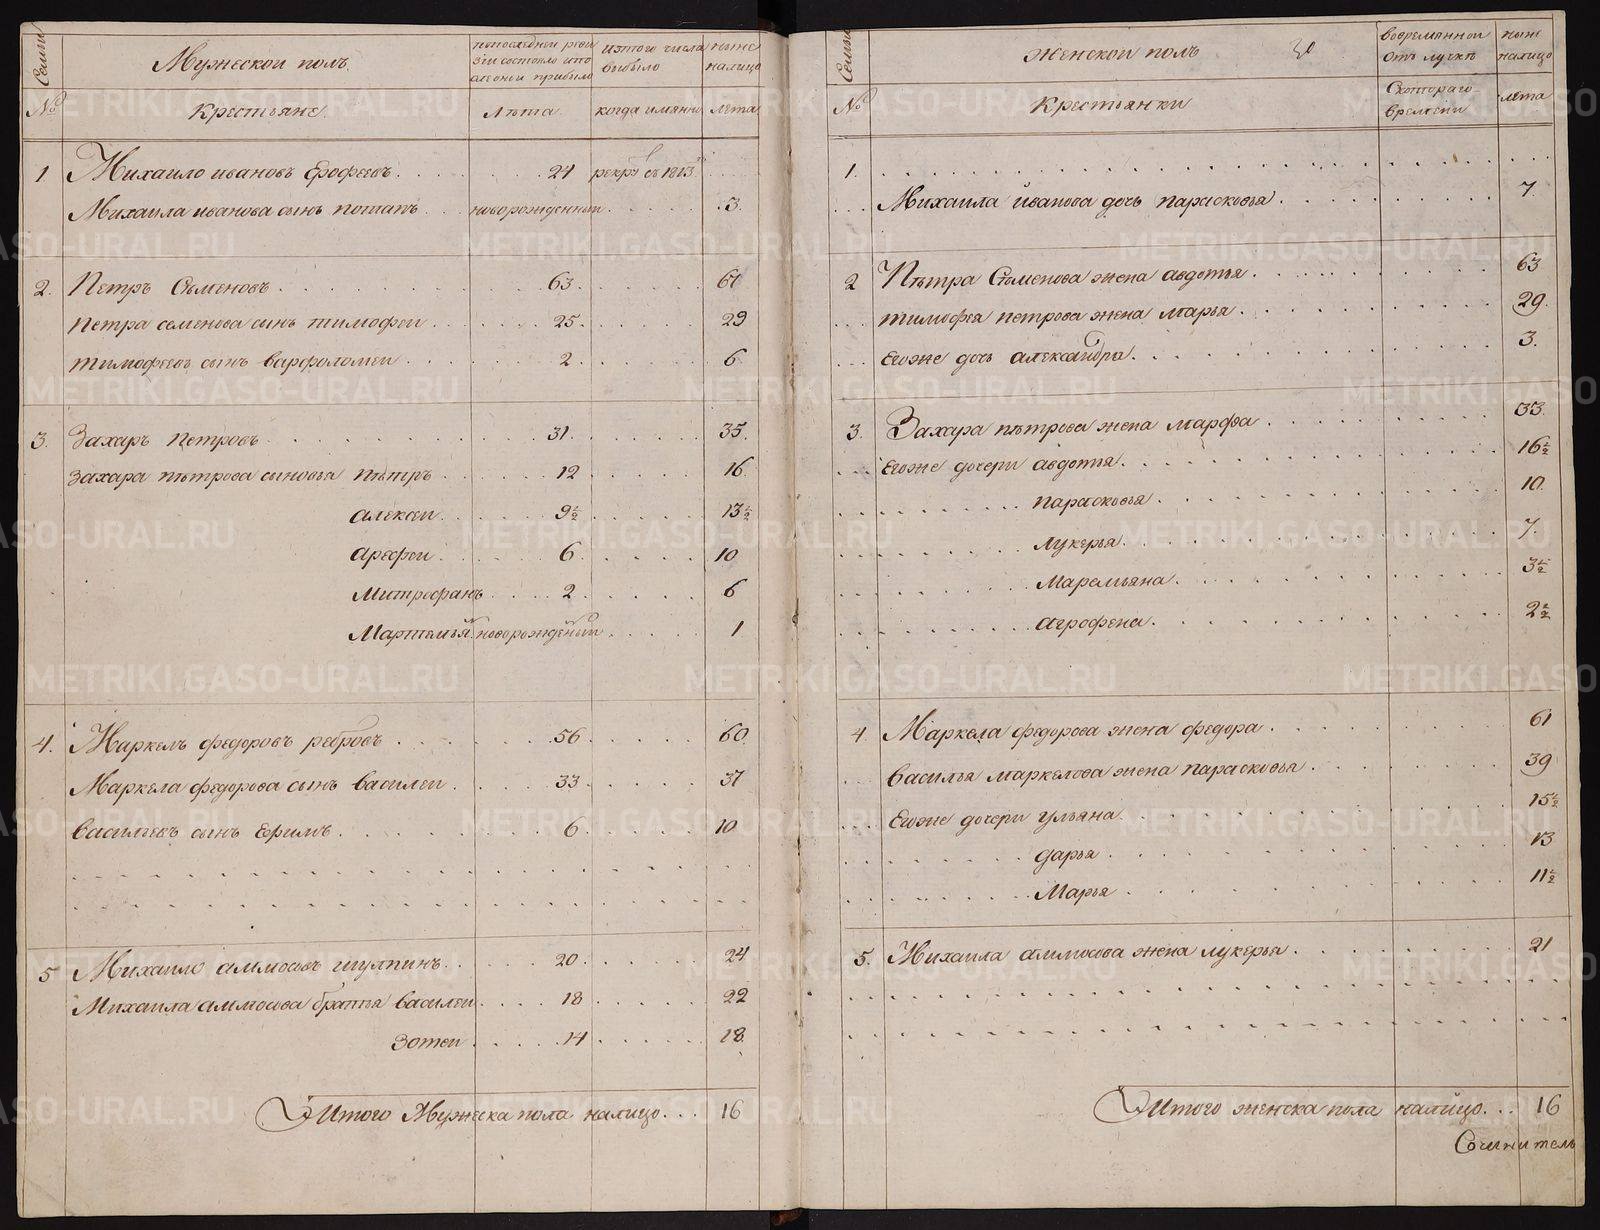 Семьи
Мужескои полъ.
попоследнеи реви
зии состояло ипо
слѣонеи прибыло
изтого числа
выбыло
ныне
налицо
№
Крестьяне.
Лѣта
когда имянно
лѣта
1 Михаило ивановъ Ерофеевъ. 24 рекрут въ 1813
Михаила иванова сынъ потапъ новорожденныи 3.
2. Петръ Сѣменовъ. 63. 67
Петра семенова сынъ тимофеи 25. 29
тимофеевъ сынъ варфоломеи 2. 6
3. Захаръ петровъ. 31. 35.
Захара пѣтрова сыновья пѣтръ 12 16
алексеи. 9½ 13½
арефеи. 6. 10
Митрофанъ 2. 6
Мартемья новорожденыи. 1
4. Маркелъ федоровъ ребровъ 56. 60.
Маркела федорова сынъ василеи. 33. 37
васильевъ сынъ Ефимъ. 6. 10
5 Михаило аммосовъ шуляпинъ. 20. 24
Михаила аммосова братья василеи. 18 22
Зотеи 14 18.
Итого Мужеска пола налицо... 16
Семьи
Женскои полъ
30
вовремяннои
отъ лучкѣ
ныне
налицо
№
Крестьянки
Скотораго
времени
лѣта
1.
Михаила иванова дочь парасковья. 7.
2 Пѣтра Сѣменова жена авдотья. 63
тимофея петрова жена марья. 29.
Евоже дочь александра. 3.
3. Захара пѣтрова жена марфа 33.
Евоже дочери авдотья. 16½
парасковья. 10.
лукерья. 7.
Маремьяна. 3½
агрофена. 2½
4. Маркела федорова жена федора. 61
василья маркелова жена парасковья. 39
Евоже дочери ульяна. 15½
дарья. 13
Марья. 11½
5. Михаила аммосова жена лукерья. 21
Итого женска пола налицо... 16
Сочинитель
METRIKI.GASO-URAL.RU